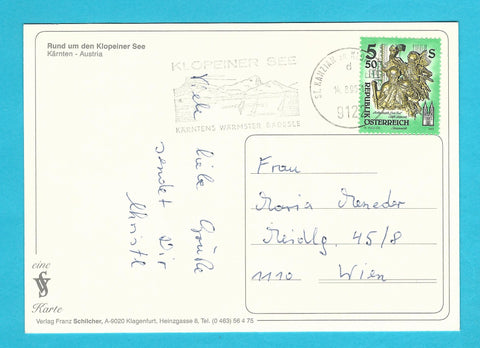 Rund um den Klopeiner See
Kärnten - Austria
KLOPEINER SEE
KÄRNTENS WÄRMSTER BADESEE
ST. KANZIAN
d
9122
5
50
S
REPUBLIK
ÖSTERREICH
Viele liebe Grüße
sendet Dir
Christl
Frau
Maria Meneder
45/8
1110 Wien
eine
VS
Karte
Verlag Franz Schilcher, A-9020 Klagenfurt, Heinzgasse 8, Tel. (0 463) 56 4 75